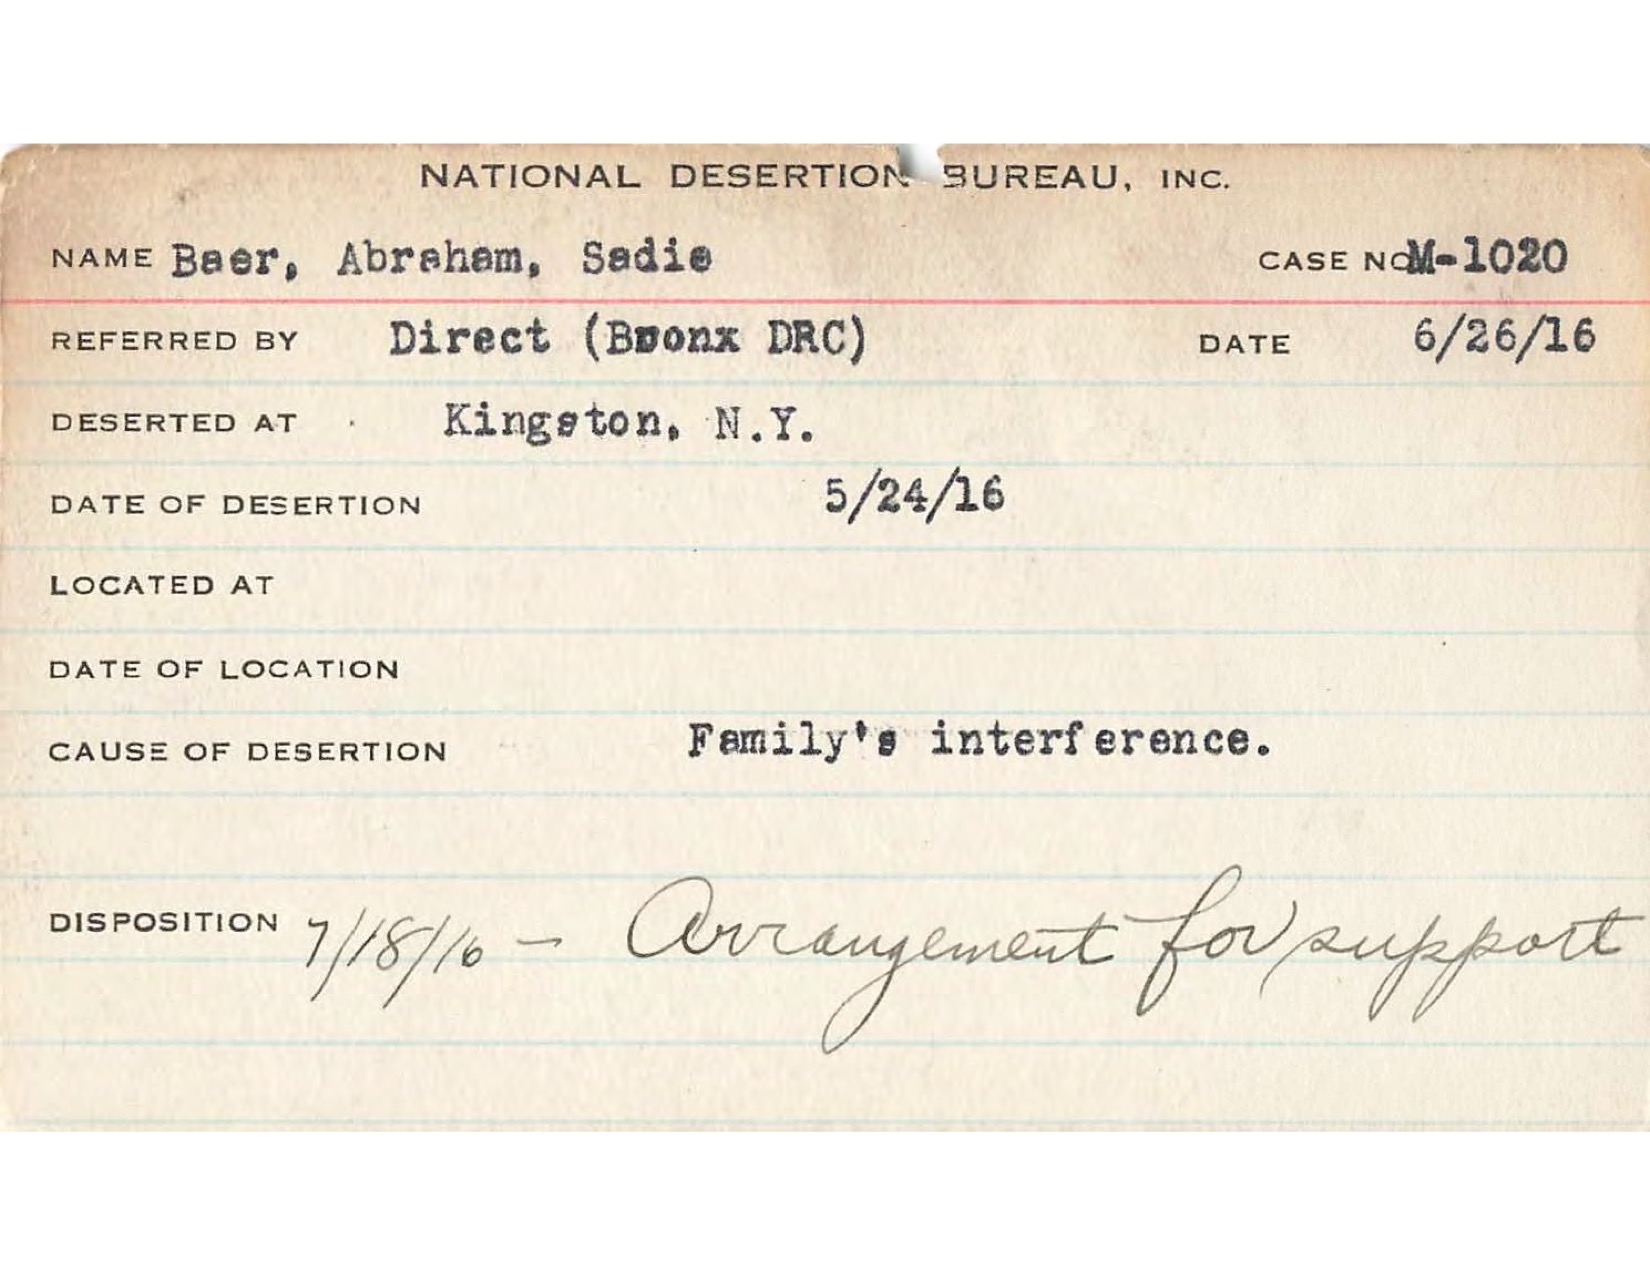 NATIONAL DESERTION BUREAU, INC.
NAME Baer, Abraham, Sadie CASE NO M-1020
REFERRED BY Direct (Bronx DRC) DATE 6/26/16
DESERTED AT Kingston, N.Y.
DATE OF DESERTION 5/24/16
LOCATED AT
DATE OF LOCATION
CAUSE OF DESERTION Family's interference.
DISPOSITION 7/18/16 - Arrangement for support